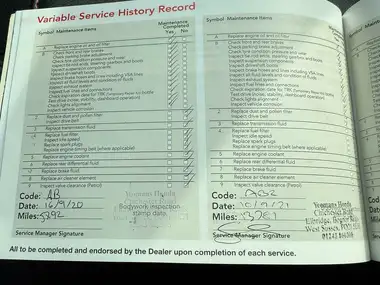 Variable Service History Record
Symbol Maintenance Items
Maintenance
Completed
Yes No
A Replace engine oil and filter
B Check front and rear brakes
Check parking brake adjustment
Check tyre condition and pressure
Inspect tie rod ends, steering gearbox and boots
Inspect suspension components
Inspect driveshaft boots
Inspect brake hoses and lines including VSA lines
Inspect all fluid levels and condition of fluids
Inspect exhaust system
Inspect fuel lines and connections
Check expiration date for TRK
Test drive (noise, stability, dashboard operation)
Check lights alignment
Inspect vehicle corrosion
2 Replace dust and pollen filter
Inspect drive belt
3 Replace transmission fluid
4 Replace fuel filter
Inspect idle speed
Replace spark plugs
Replace engine timing belt (where applicable)
5 Replace engine coolant
6 Replace rear differential fluid
7 Replace brake fluid
8 Replace air cleaner element
9 Inspect valve clearance (Petrol)
Code: AB
Date: 16/9/20
Miles: 5392
Yeomans Honda
Bodywork inspection
stamp date
Service Manager Signature
Symbol Maintenance Items
A Replace engine oil and filter
B Check front and rear brakes
Check parking brake adjustment
Check tyre condition and pressure
Inspect tie rod ends, steering gearbox and boots
Inspect suspension components
Inspect driveshaft boots
Inspect brake hoses and lines including VSA lines
Inspect all fluid levels and condition of fluids
Inspect exhaust system
Inspect fuel lines and connections
Check expiration date for TRK
Test drive (noise, stability, dashboard operation)
Check lights alignment
Inspect vehicle corrosion
2 Replace dust and pollen filter
Inspect drive belt
3 Replace transmission fluid
4 Replace fuel filter
Inspect idle speed
Replace spark plugs
Replace engine timing belt (where applicable)
5 Replace engine coolant
6 Replace rear differential fluid
7 Replace brake fluid
8 Replace air cleaner element
9 Inspect valve clearance (Petrol)
Code:
Date: 10/9/21
Miles:
Yeomans Honda
Chichester Road
Bognor Regis
West Sussex,
01243
Service Manager Signature
All to be completed and endorsed by the Dealer upon completion of each service.